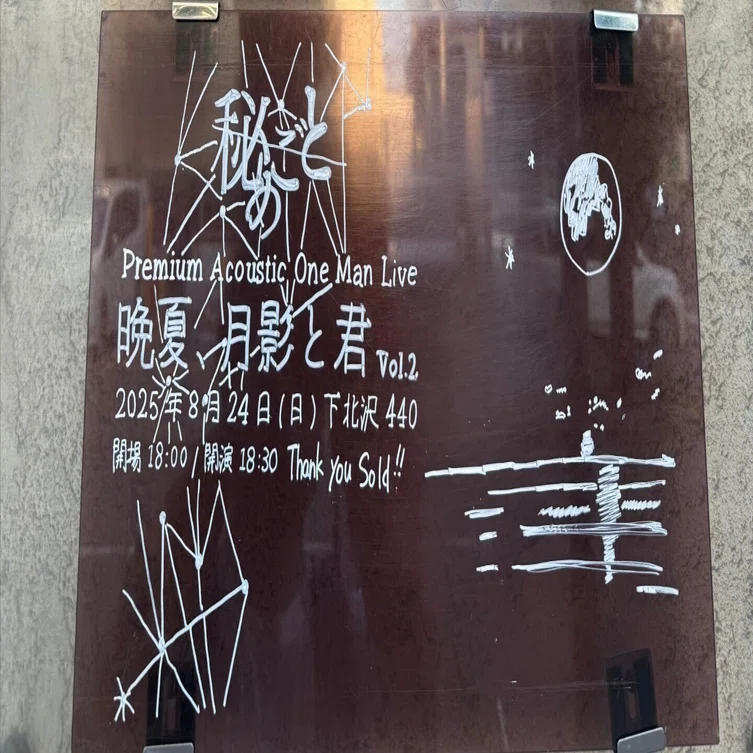 秘めごと
Premium Acoustic One Man Live
晩夏、月影と君 Vol.2
2025年8月24日(日)下北沢440
開場 18:00 / 開演 18:30 Thank you Sold!!